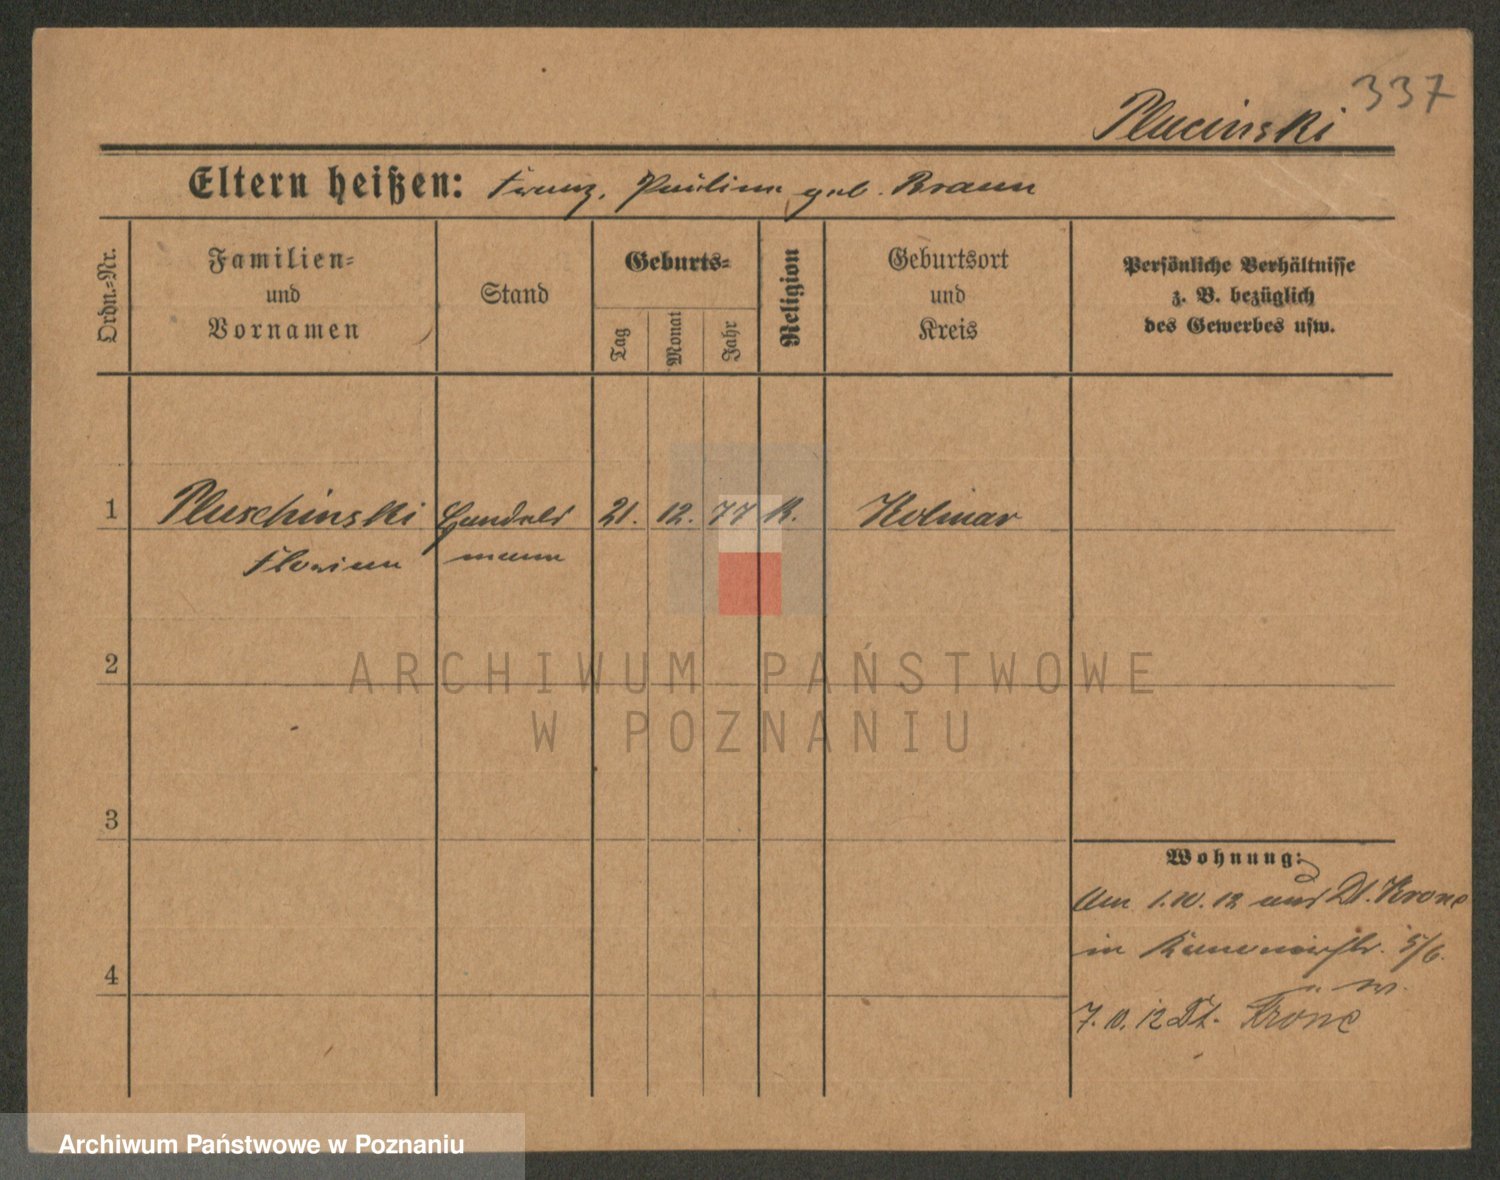 337
Plucinski
Eltern heißen: Franz, Paulina geb. Braun
Ordn.=Nr.
Familien=
und
Vornamen
Stand
Geburts=
Tag
Monat
Jahr
Religion
Geburtsort
und
Kreis
Persönliche Verhältnisse
z. B. bezüglich
des Gewerbes usw.
1 Pluschinski Handels 21. 12. 77 K. Kolmar
Florian mann
2
ARCHIWUM PAŃSTWOWE
W POZNANIU
3
Wohnung:
Am 1.10.12 aus Dt. Krone
in 5/6.
4
7.10.12 Dt. Krone
Archiwum Państwowe w Poznaniu